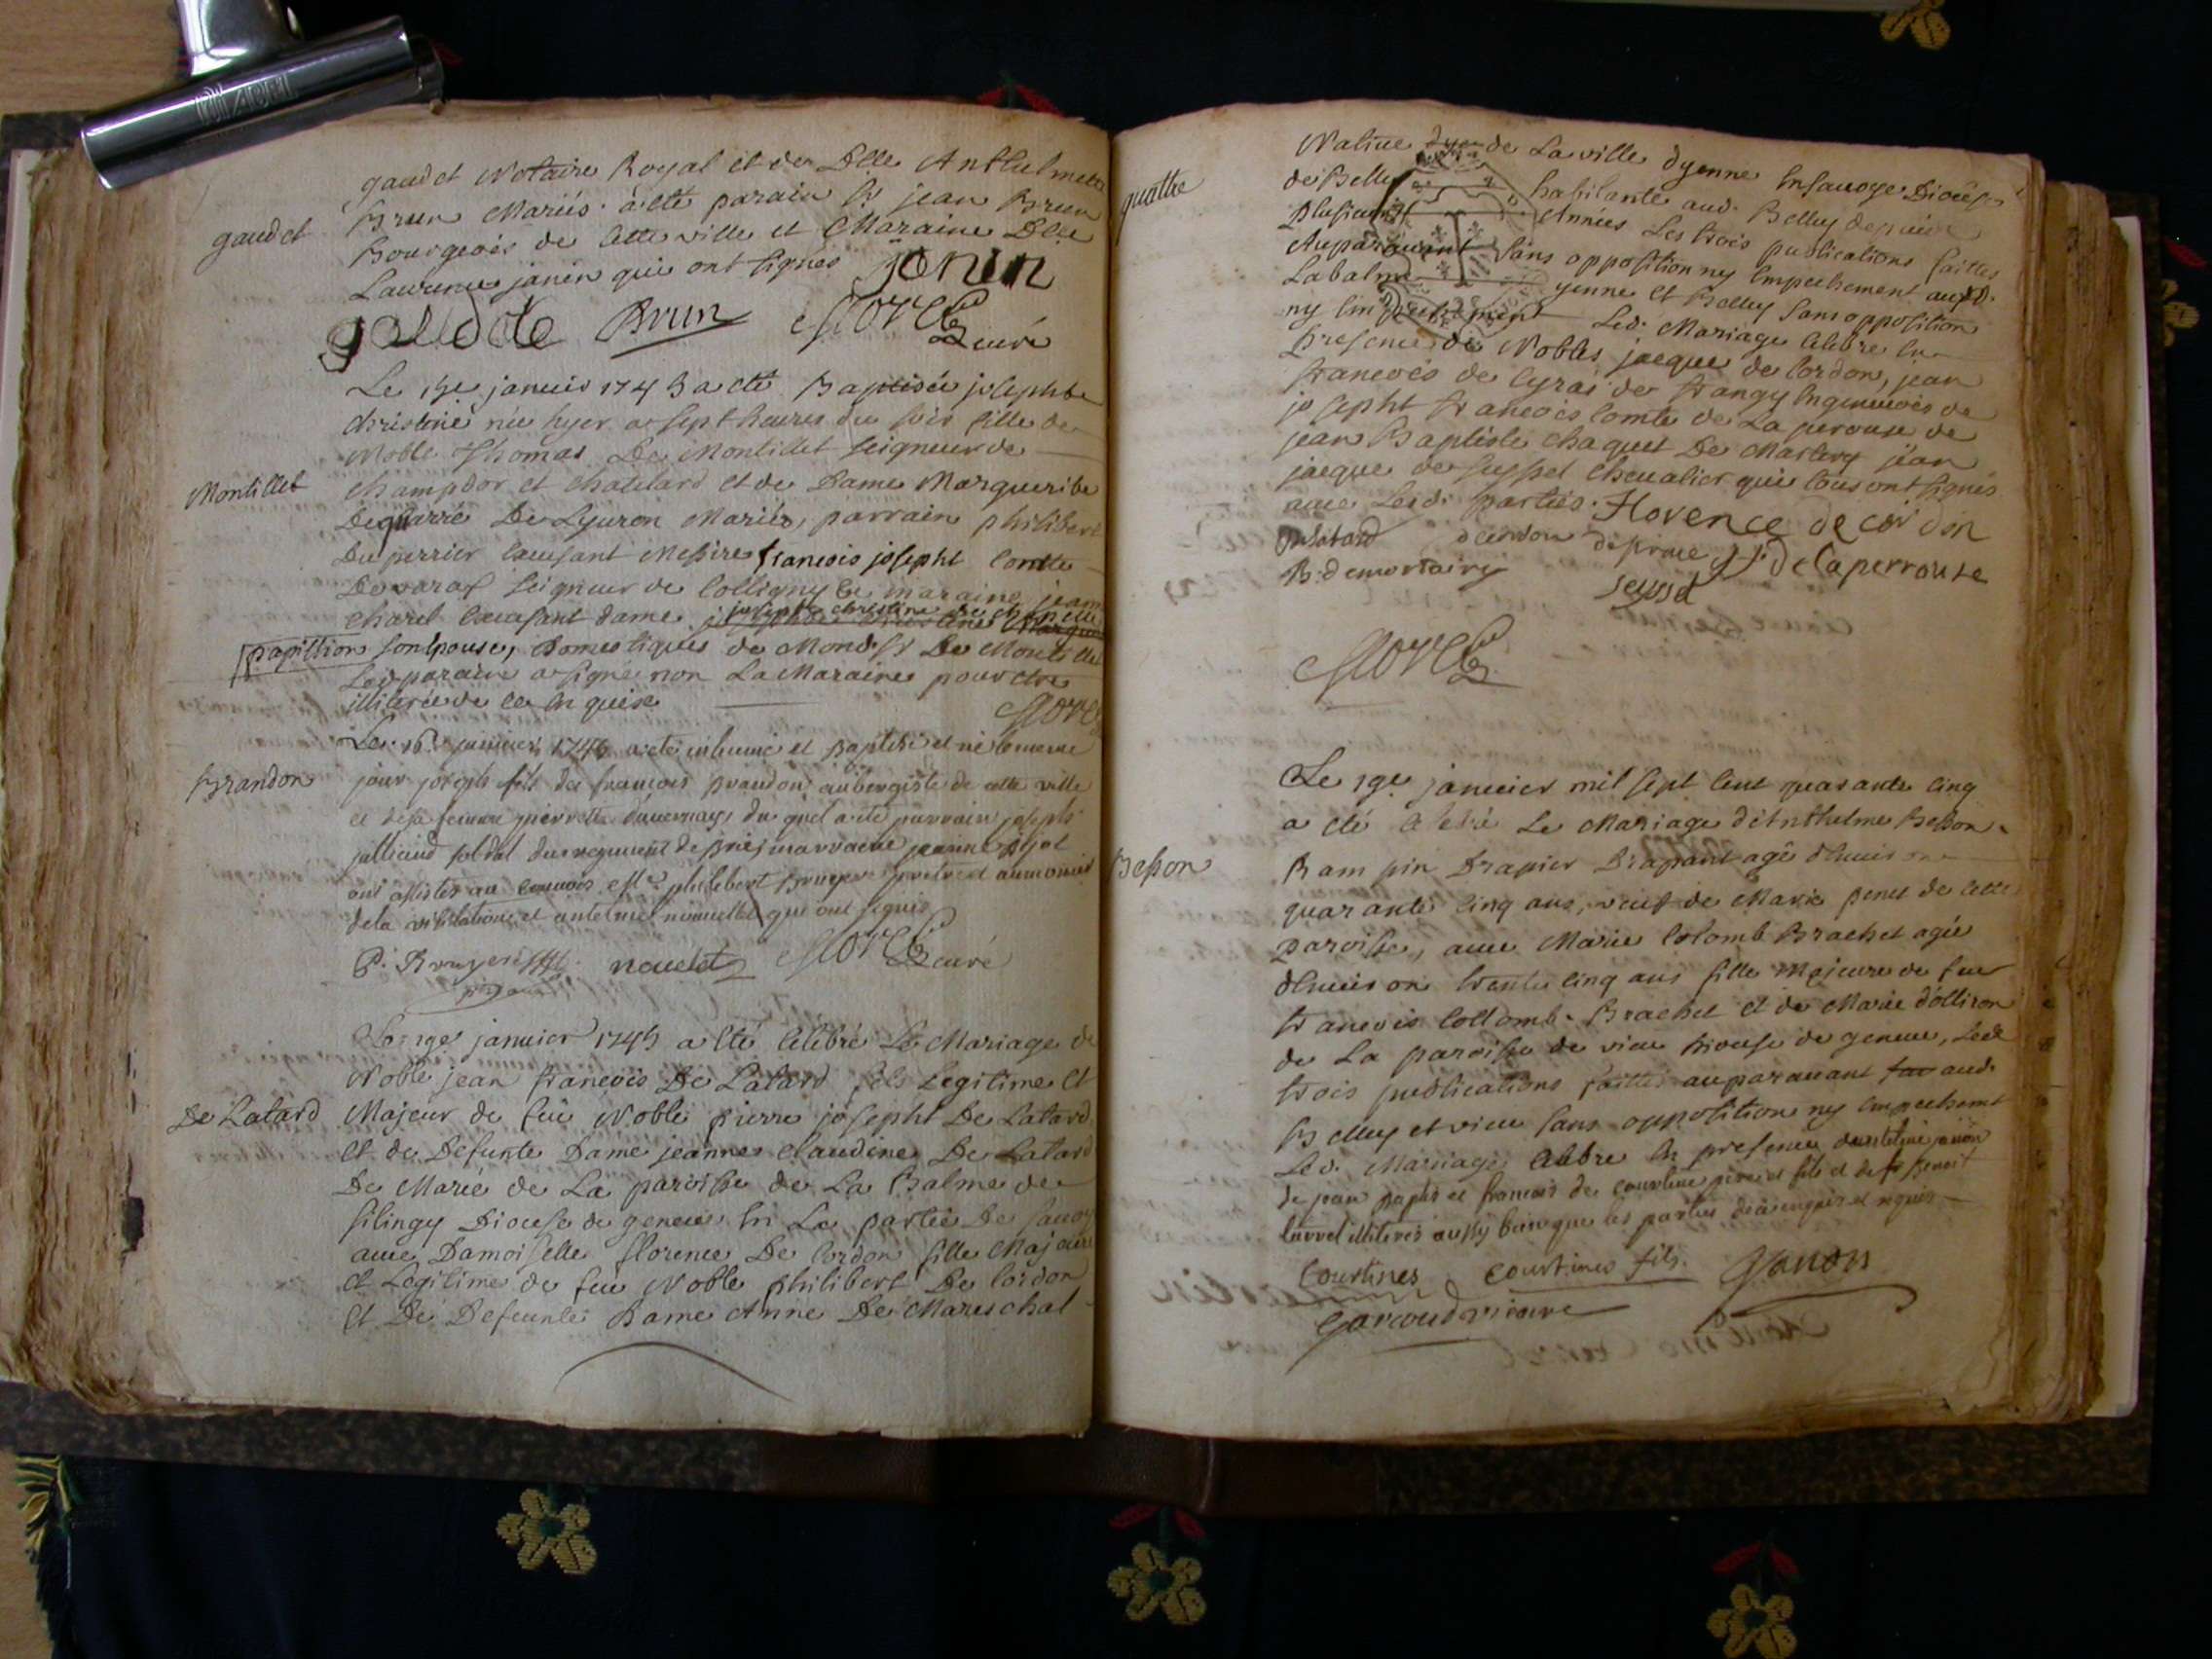 gaudet Notaire Royal et de Dlle Anthelmette
gaudet
Brun Mariés. a été parain Sr jean Brun
Bourgeois de cette ville et Maraine Dlle
Laurence janin qui ont signés janin
gaudete Brun curé
Le janvier 1745 a eté Baptisée josephte
christine née hyer a sept heures du soir fille de
Noble Thomas De Montillet seigneur de
Montillet
champdor et chatelard et de Dame Marguerite
De Lyuron Mariés, parrain philibert
Duperrier faisant Messire francois josepht Comte
De varax seigneur de Colligny maraine
charet faisant dame josephte christine
papillion son Epouse, domestiques de De Montillet
Led. parain a signé non La Maraine pour etre
illiterée de ce En quise
Le 16e janvier 1745 a eté inhumé et Baptisé et né le meme
Brandon
jour joseph fils de francois Brandon aubergiste de cette ville
et de sa femme pierrette du quel a eté parrain joseph
soldat du regiment de marraine jeanne
ont assistés au convois philibert Bruyere pretre et aumonier
de la visitation et antelme nouellet qui ont signés
P. Bruyere nouelet curé
Le 19e janvier 1745 a Eté Célébré Le Mariage de
Noble jean francois De Lalard fils Legitime Et
De Lalard
Majeur de feu Noble pierre josepht De Lalard
Et de Defunte Dame jeanne claudine De Lalard
De Marie de La paroisse de La Balme de
silingy Diocese de geneve En La partie De savoy
avec Damoiselle florence De Cordon fille Majeure
Et Legitime de feu Noble philibert De Cordon
Et De Defeunte Dame Anne De Mareschal
quattre
Native de La ville dyenne En savoye Diocese
de Belley habitante aud. Belley depuis
plusieurs Années Les trois publications faittes
Auparavant sans opposition ny Empechement
Labalme yenne Et Belley sans opposition
ny Empechement Led. Mariage Celebré En
presence de Nobles jacque de Cordon, jean
francois de de frangy
josepht francois Comte de La perouse de
jean Baptiste chaquet De jean
jacque de seyssel chevalier qui tous ont signés
avec Lesd. parties. Florence de cordon
Delalard decordon de laperrouse
seyssel
Le 19e janvier mil sept Cent quarante Cinq
a été Celebré Le Mariage d'Anthelme Besson
Besson
Rampin Drapier Drapant agé d'Environ
quarante Cinq ans, veuf de Marie penet de cette
paroisse, avec Marie Colomb Brachet agée
d'Environ trente Cinq ans fille Majeure de feu
francois Collomb. Brachet Et de Marie d'olliron
de La paroisse de vieu Diocese de geneve, Les
trois publications faittes auparavant aud.
Belley et vieu sans opposition ny Empechemt
Led. Mariage Celebré En presence d'antelme janon
de jean baptiste et francois de courtine pere et fils et de Benoit
illiterés aussy bien que les parties de ce enquis et requis
Courtines courtines fils. Janon
vicaire